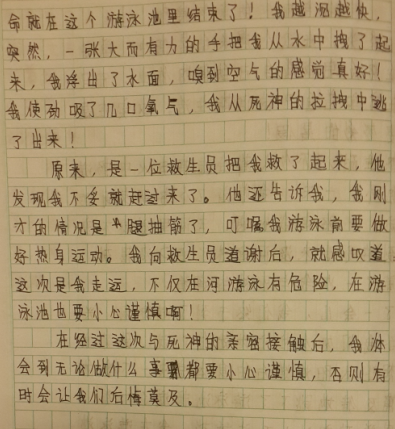 命就在这个游泳池里结束了！我越沉越快，
突然，一张大而有力的手把我从水中拽了起
来，我浮出了水面，嗅到空气的感觉真好！
我使劲吸了几口氧气，我从死神的拉拽中逃
了出来！
原来，是一位救生员把我救了起来，他
发现我不妥就赶过来了。他还告诉我，我刚
才的情况是腿抽筋了，叮嘱我游泳前要做
好热身运动。我向救生员道谢后，就感叹道
这次是我走运，不仅在河游泳有危险，在游
泳池也要小心谨慎啊！
在经过这次与死神的亲密接触后，我体
会到无论做什么事都要小心谨慎，否则有
时会让我们后悔莫及。